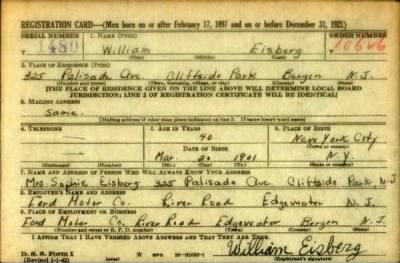 REGISTRATION CARD—(Men born on or after February 17, 1897 and on or before December 31, 1921)
SERIAL NUMBER 1. NAME (Print) ORDER NUMBER
1480 William Eisberg 10646
(First) (Middle) (Last)
2. PLACE OF RESIDENCE (Print)
325 Palisade Ave Cliffside Park Bergen N.J.
(Number and street) (Town, township, village, or city) (County) (State)
[THE PLACE OF RESIDENCE GIVEN ON THE LINE ABOVE WILL DETERMINE LOCAL BOARD
JURISDICTION; LINE 2 OF REGISTRATION CERTIFICATE WILL BE IDENTICAL]
3. MAILING ADDRESS
Same.
[Mailing address if other than place indicated on line 2. If same insert word same]
4. TELEPHONE 5. AGE IN YEARS 6. PLACE OF BIRTH
40 New York City
DATE OF BIRTH (Town or county)
Mar. 20 1901 N.Y.
(Exchange) (Number) (Mo.) (Day) (Yr.) (State or country)
7. NAME AND ADDRESS OF PERSON WHO WILL ALWAYS KNOW YOUR ADDRESS
Mrs. Sophie Eisberg 325 Palisade Ave Cliffside Park, N.J.
8. EMPLOYER'S NAME AND ADDRESS
Ford Motor Co. River Road Edgewater N.J.
9. PLACE OF EMPLOYMENT OR BUSINESS
Ford Motor Co. River Road Edgewater Bergen N.J.
(Number and street or R. F. D. number) (Town) (County) (State)
I AFFIRM THAT I HAVE VERIFIED ABOVE ANSWERS AND THAT THEY ARE TRUE.
William Eisberg
D. S. S. Form 1
(Revised 1-1-42) GPO (Registrant's signature)